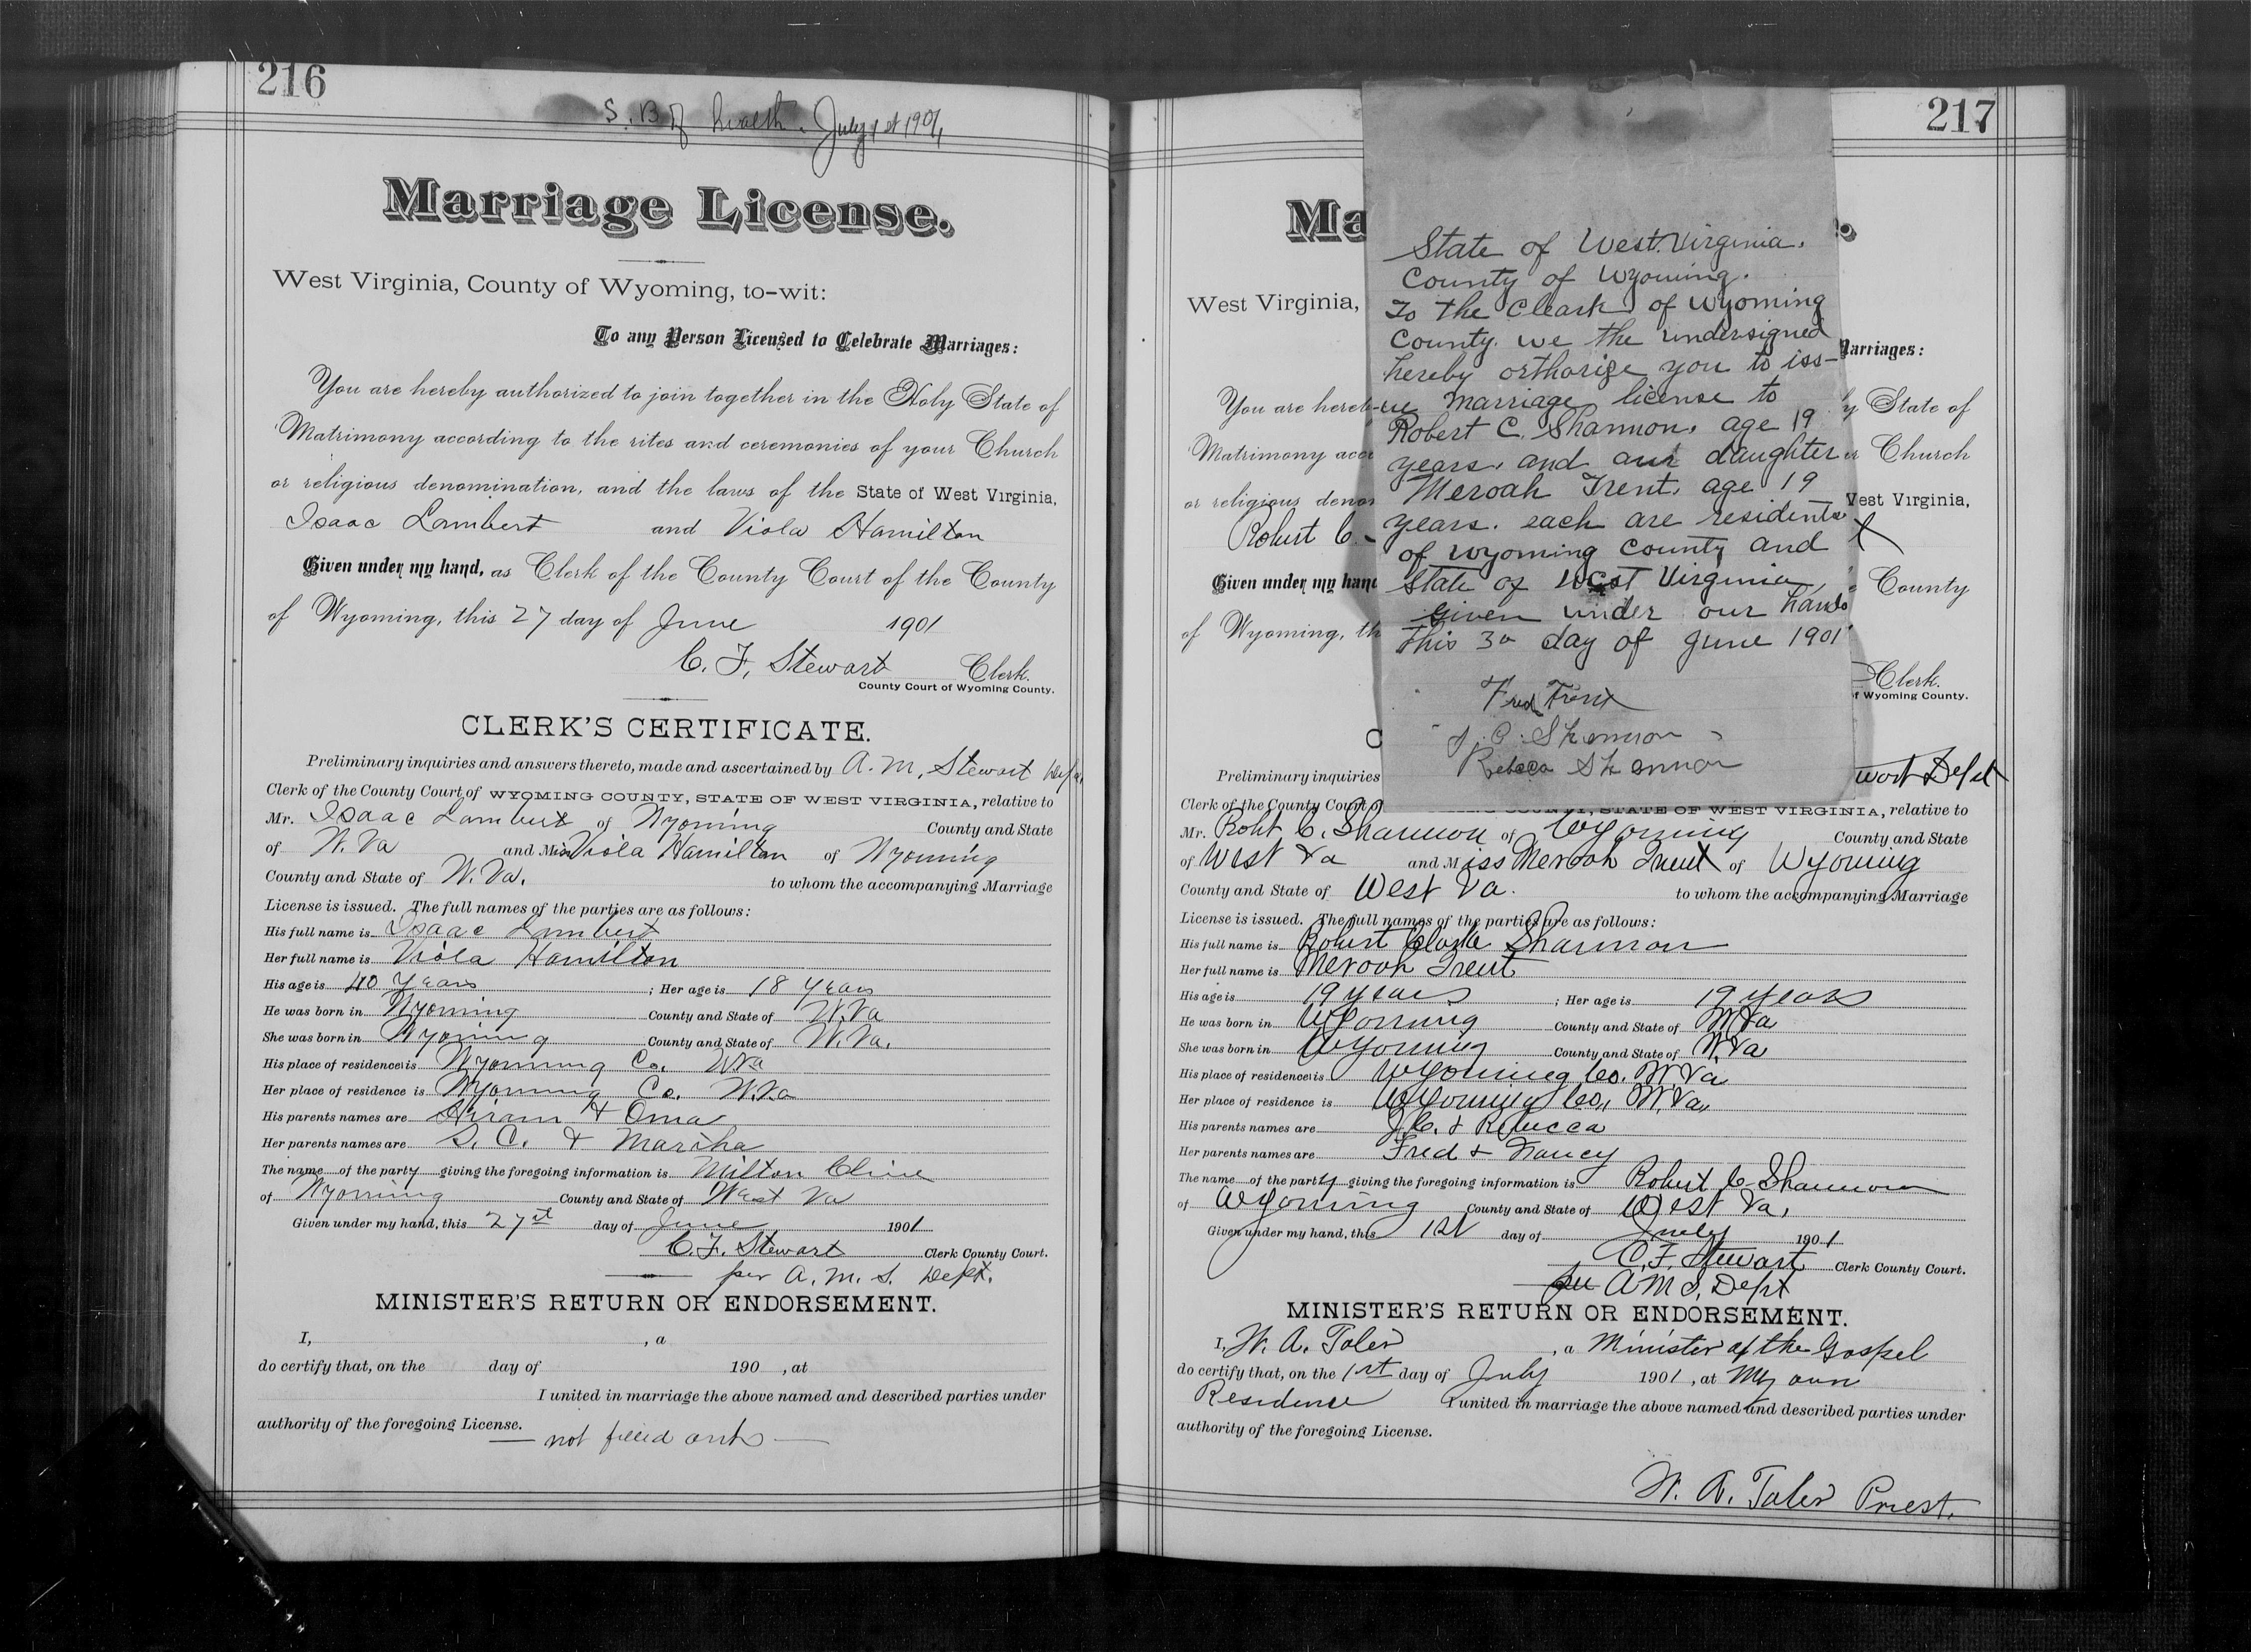 216
S. B of health. July 1st 1901
Marriage License.
West Virginia, County of Wyoming, to-wit:
To any Person Licensed to Celebrate Marriages:
You are hereby authorized to join together in the Holy State of
Matrimony according to the rites and ceremonies of your Church
or religious denomination, and the laws of the State of West Virginia,
Isaac Lambert and Viola Hamilton
Given under my hand, as Clerk of the County Court of the County
of Wyoming, this 27 day of June 1901
C. F. Stewart Clerk.
County Court of Wyoming County.
CLERK'S CERTIFICATE.
Preliminary inquiries and answers thereto, made and ascertained by A. M. Stewart
Clerk of the County Court of WYOMING COUNTY, STATE OF WEST VIRGINIA, relative to
Mr. Isaac Lambert of Wyoming County and State
of W. Va and Miss Viola Hamilton of Wyoming
County and State of W. Va. to whom the accompanying Marriage
License is issued. The full names of the parties are as follows:
His full name is Isaac Lambert
Her full name is Viola Hamilton
His age is 40 Years ; Her age is 18 Years
He was born in Wyoming County and State of W. Va
She was born in Wyoming County and State of W. Va.
His place of residence is Wyoming Co. W Va
Her place of residence is Wyoming Co. W. Va
His parents names are Hiram & Oma
Her parents names are S. C. & Martha
The name of the party giving the foregoing information is Milton Cline
of Wyoming County and State of West Va
Given under my hand, this 27st day of June 1901
C. F. Stewart Clerk County Court.
per A. M. S. Dept.
MINISTER'S RETURN OR ENDORSEMENT.
I, , a
do certify that, on the day of 190 , at
I united in marriage the above named and described parties under
authority of the foregoing License.
— not filled out —
217
Ma
State of West Virginia.
County of Wyoming.
To the Cleark of Wyoming
County. we the undersigned
hereby orthorize you to iss-
-ue Marriage license to
Robert C. Shannon. age 19
years. and our daughter
Meroah Trent. age 19
years. each are residents
of Wyoming County and
State of West Virginia,
Given under our hands
this 30 day of June 1901
Fred Trent
J. C. Shannon
Rebeca Shannon
West Virginia,
Marriages:
You are here y State of
Matrimony acc r Church
or religious deno West Virginia,
Robert C.
Given under my hand County
of Wyoming, th
Clerk.
of Wyoming County.
C
Preliminary inquiries wart Dept
Clerk of the County Court of COUNTY, STATE OF WEST VIRGINIA, relative to
Mr. Robt C. Shannon of Wyoming County and State
of West Va and Miss Meroah Trent of Wyoming
County and State of West Va. to whom the accompanying Marriage
License is issued. The full names of the parties are as follows:
His full name is Robert Clark Shannon
Her full name is Meroah Trent
His age is 19 years ; Her age is 19 years
He was born in Wyoming County and State of W. Va
She was born in Wyoming County and State of W. Va
His place of residence is Wyoming Co. W. Va
Her place of residence is Wyoming Co., W. Va,
His parents names are J. C. & Rebecca
Her parents names are Fred & Nancy
The name of the party giving the foregoing information is Robert C Shannon
of Wyoming County and State of West Va.
Given under my hand, this 1st day of July 1901
C. F. Stewart Clerk County Court.
per A M S, Dept
MINISTER'S RETURN OR ENDORSEMENT.
I, W. A. Toler , a Minister of the Gospel
do certify that, on the 1st day of July 1901, at My own
Residence I united in marriage the above named and described parties under
authority of the foregoing License.
W. A. Toler Priest.